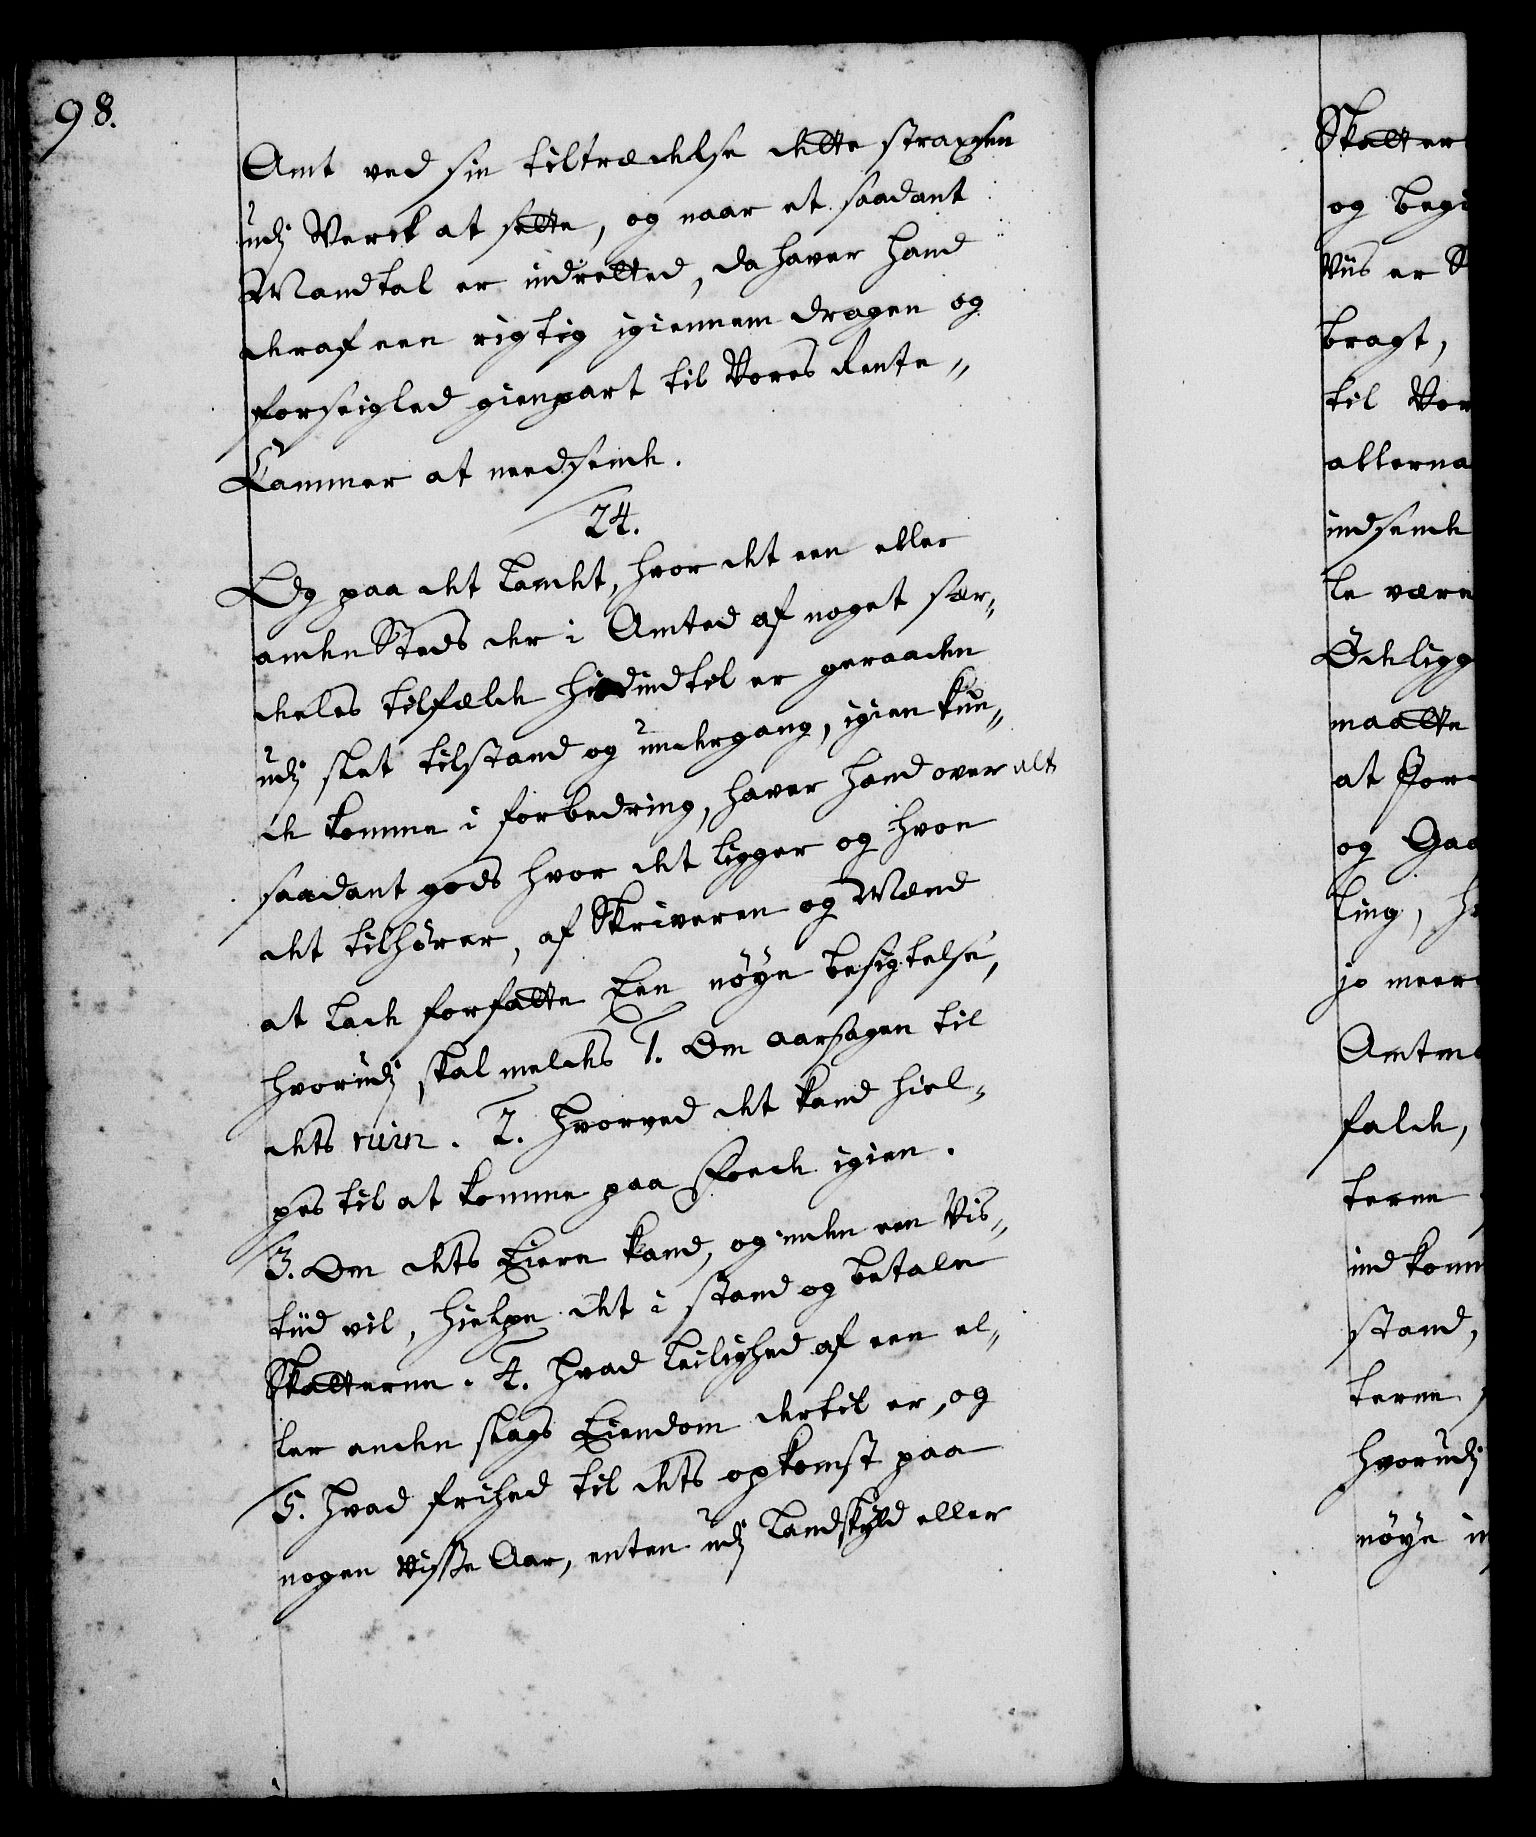 98.
Amt ved sin tiltrædelse dette straxsen
udj Verck at sette, og naar et saadant
Mandtal er indretted, da haver hand
deraf een rigtig igiennem dragen og
forseigled gienpart til Vores Rente„
Cammer at needsende.
24.
Og paa det landet, hvor det een eller
anden Steds der i Amted af noget sær„
deles tilfælde hidindtil er geraaden
udj slet tilstand og undergang, igien kun„
de komme i forbedring, haver hand over alt
saadant gods hvor det ligger og hvem
det tilhører, af Skriveren og Mænd
at lade forfatte Een nøye besigtelse,
hvorudj skal meldes 1. Om aarsagen til
dets ruin. 2. Hvorved det kand hiel„
pes til at komme paa foede igien.
3. Om dets Eiere kand, og inden een Vis„
tiid vil, hielpe det i stand og betale
Skatterne. 4. Hvad leilighed af een el„
ler anden slags Eiendom dertil er, og
5. Hvad frihed til dets opkomst paa
nogen visse Aar, enten udj Landskyld eller
Skatter
og begi
Viis er S
bragt,
til Vor
allerna
indsende
le være
Ødeligg
maatte
at For
og Gaa
ling, h
jo meer
Amtma
falde,
terne
indkom
stand,
terne
hvorudj
nøye in